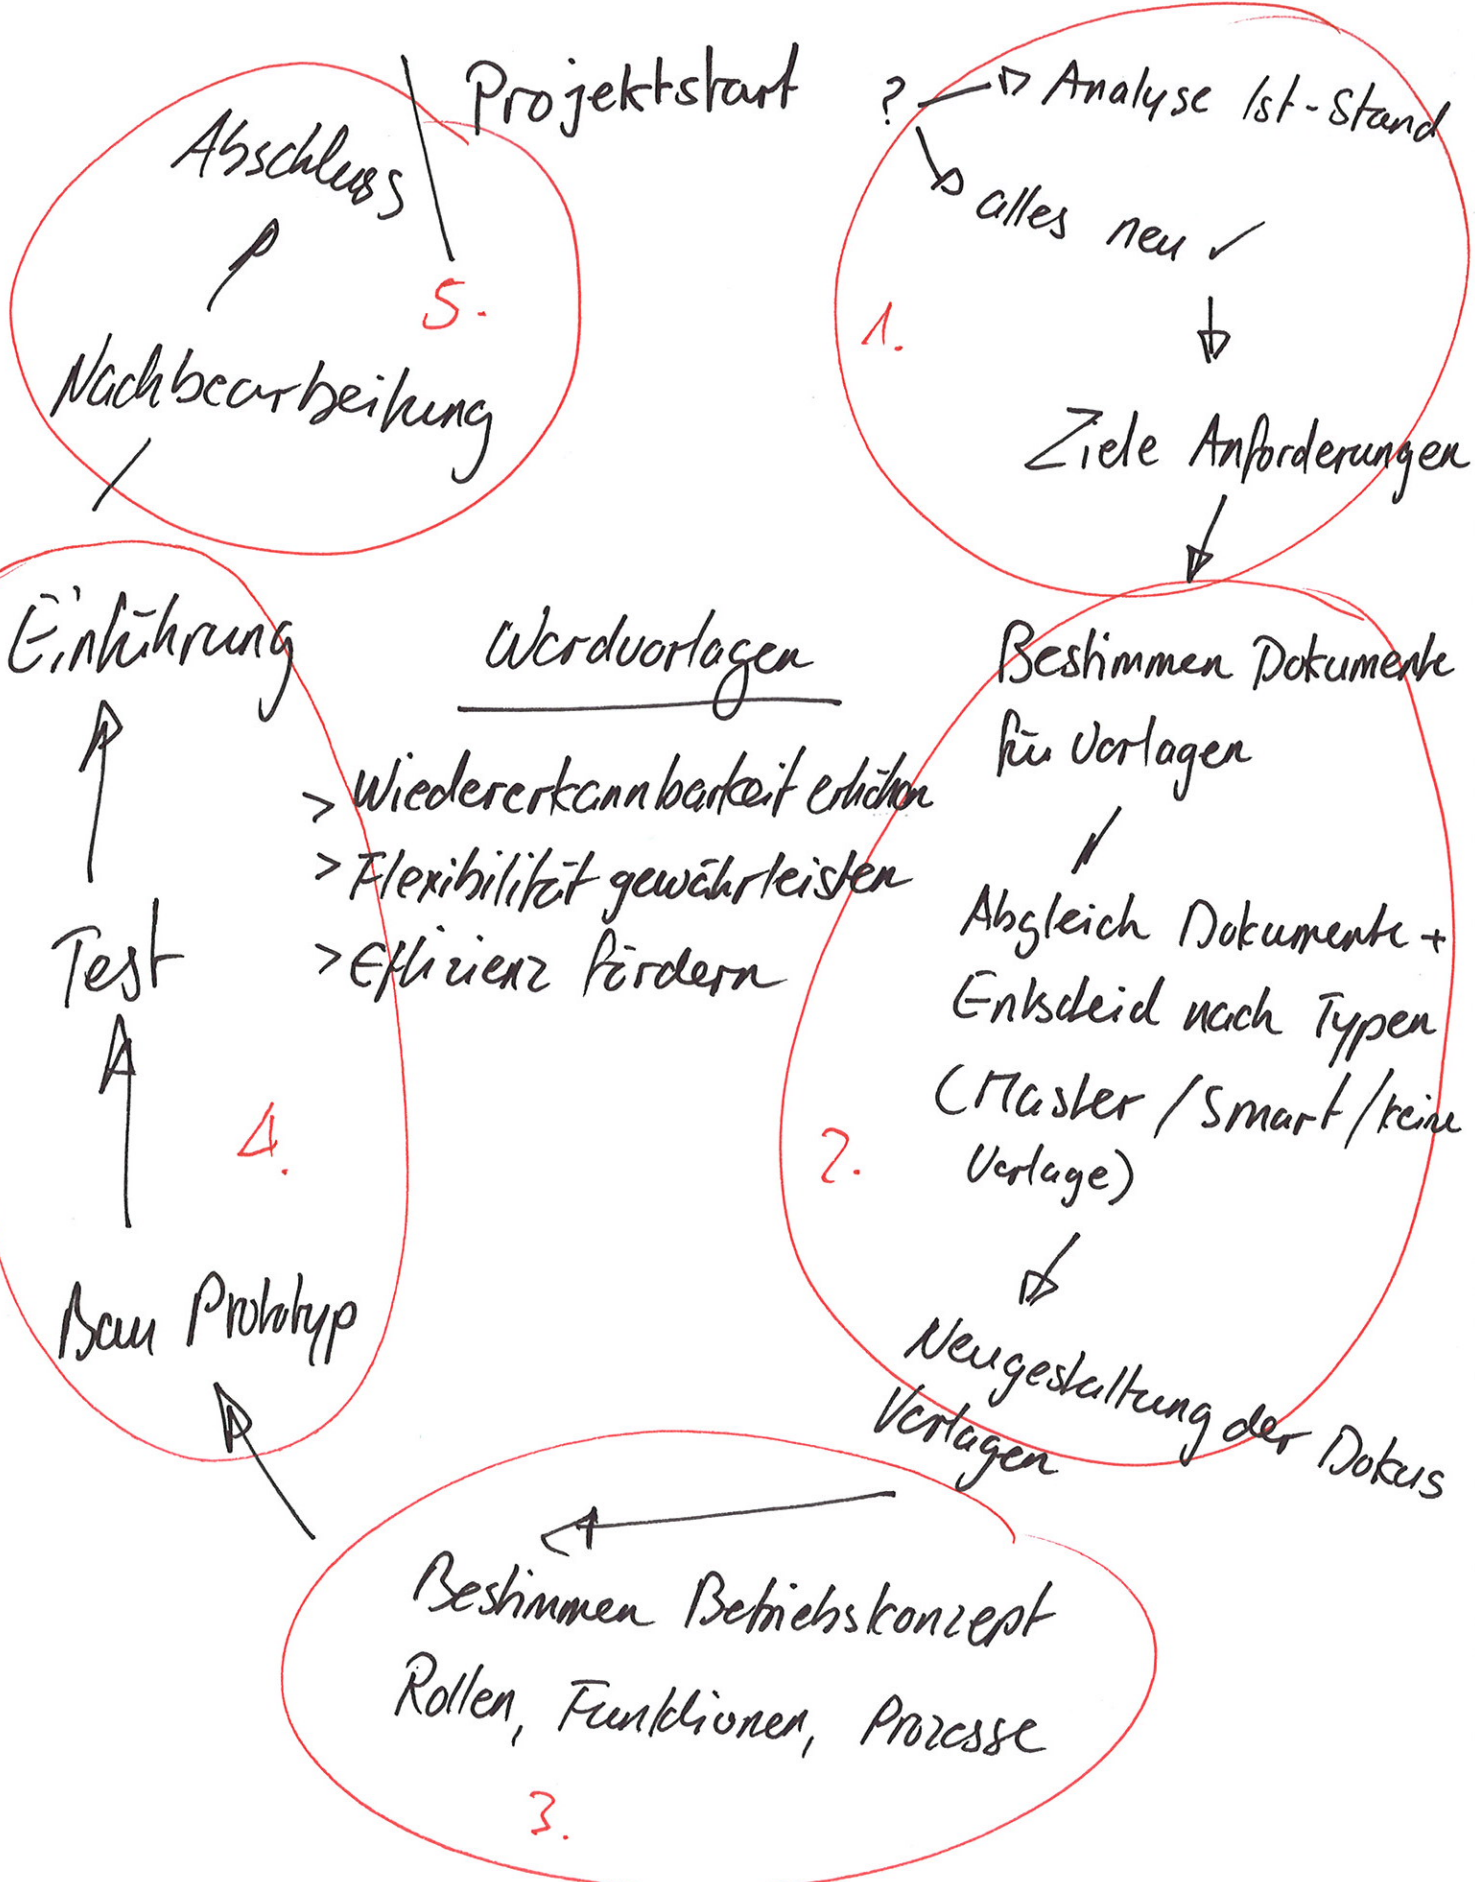 Projektstart
? Analyse Ist-Stand
alles neu ✓
1.
Ziele Anforderungen
Bestimmen Dokumente
für Vorlagen
Abgleich Dokumente +
Entscheid nach Typen
(Master / Smart / keine
Vorlage)
2.
Neugestaltung der Dokus
Vorlagen
Bestimmen Betriebskonzept
Rollen, Funktionen, Prozesse
3.
Bau Prototyp
4.
Test
Einführung
Nachbearbeitung
5.
Abschluss
Wordvorlagen
> Wiedererkannbarkeit erhöhen
> Flexibilität gewährleisten
> Effizienz fördern